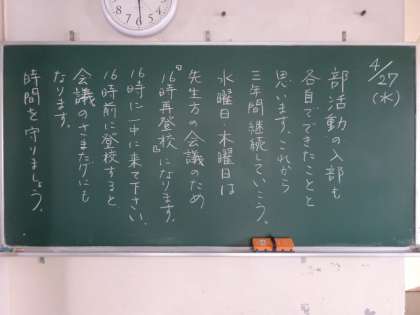 4/27
(水)
部活動の入部も
各自でできたことと
思います。これから
三年間継続していこう。
水曜日 木曜日は
先生方の会議のため
『16時再登校』になります。
16時に一中に来て下さい。
16時前に登校すると
会議のさまたげにも
なります。
時間を守りましょう。